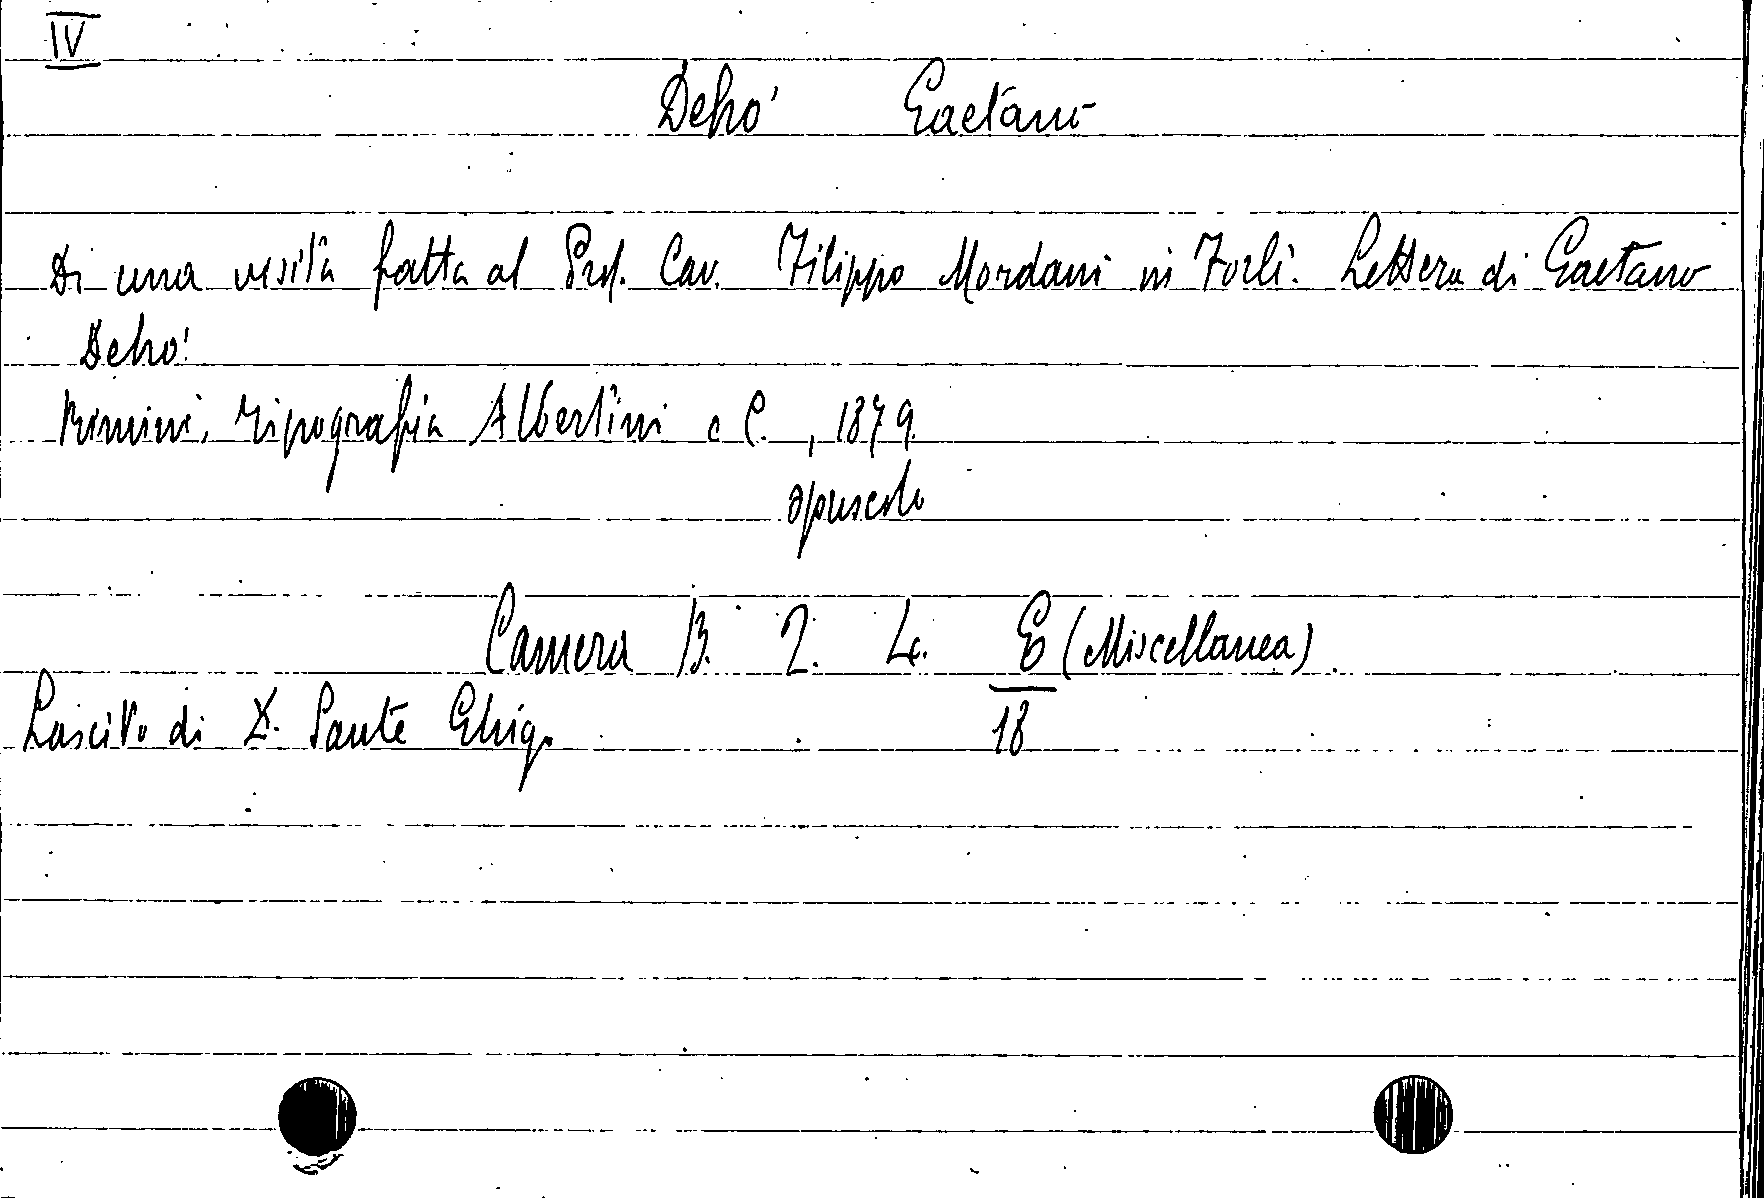 IV
Dehò Gaetano
Di una visita fatta al Prof. Cav. Filippo Mordani in Forlì. Lettera di Gaetano
Dehò.
Rimini, Tipografia Albertini e C., 1879
opuscolo
Camera B. 2. 4. E (Miscellanea).
Lascito di D. Sante Ghig. 18